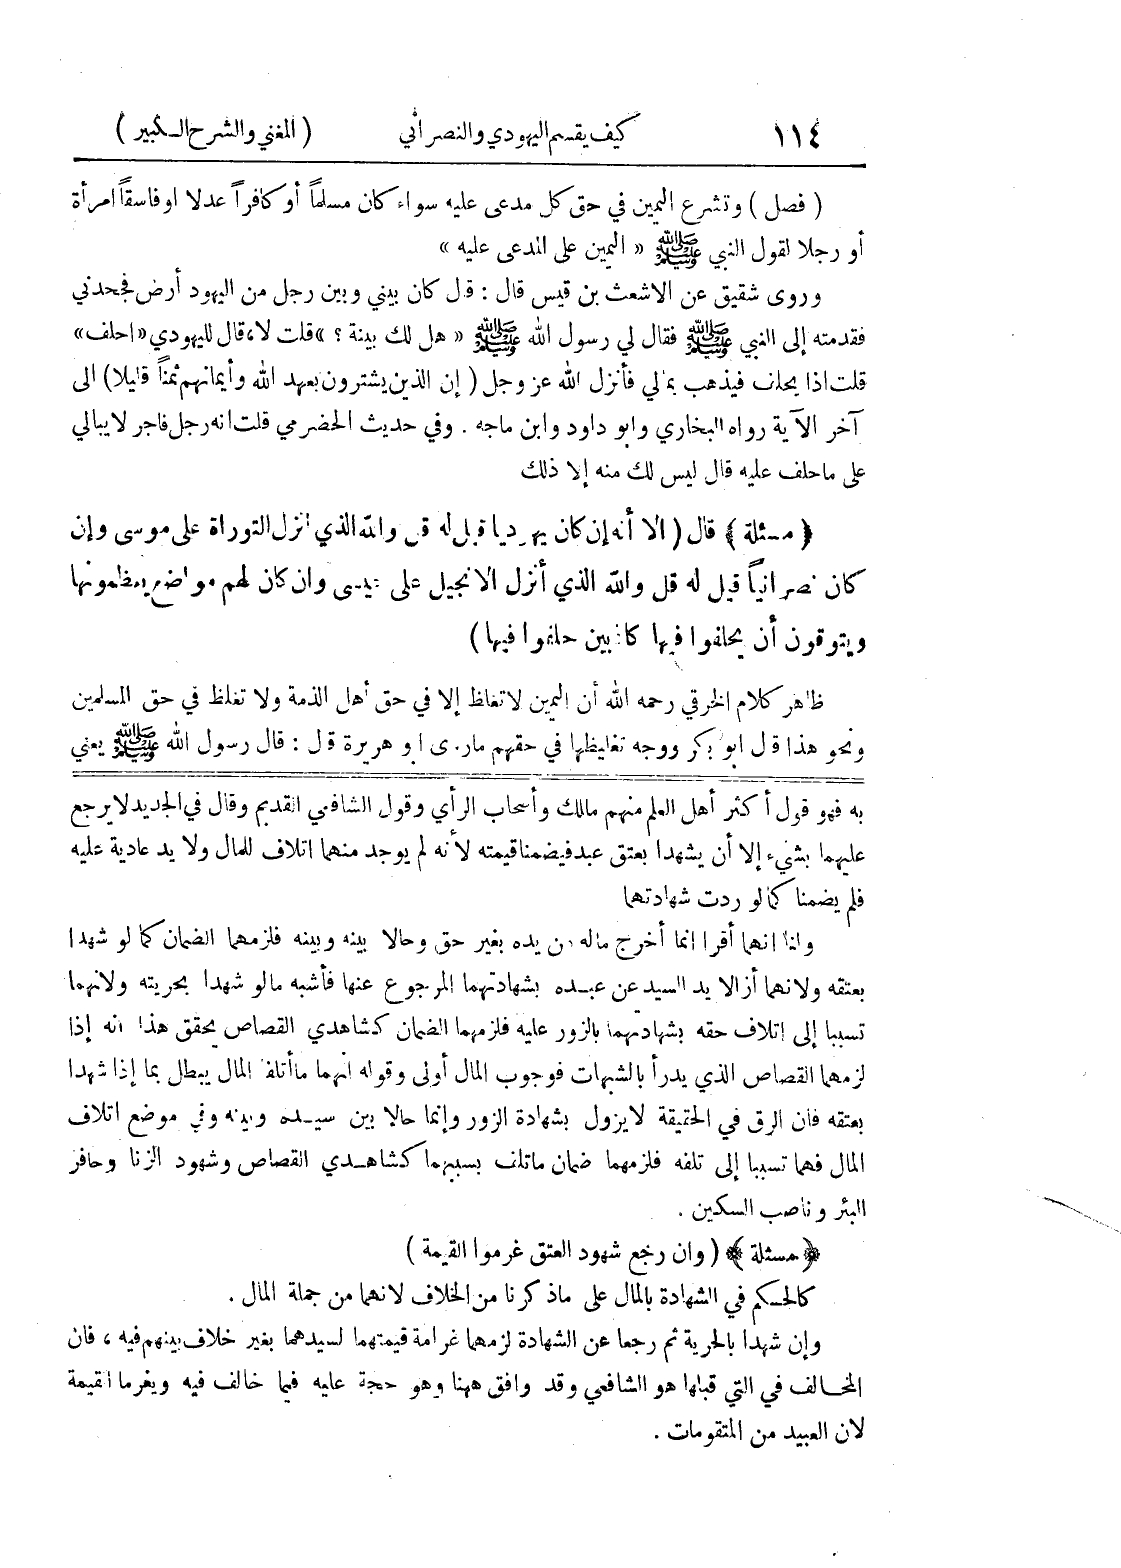 ١١٤ كيف يقسم اليهودي والنصراني ( المغني والشرح الكبير )
( فصل ) وتشرع اليمين في حق كل مدعى عليه سواء كان مسلماً أو كافراً عدلا او فاسقاً امرأة
أو رجلا لقول النبي ﷺ « اليمين على المدعى عليه »
وروى شقيق عن الاشعث بن قيس قال : قال كان بيني وبين رجل من اليهود أرض فجحدني
فقدمته إلى النبي ﷺ فقال لي رسول الله ﷺ « هل لك بينة ؟ » قلت لا، قال لليهودي «احلف»
قلت اذا يحلف فيذهب بمالي فأنزل الله عز وجل ( إن الذين يشترون بعهد الله وأيمانهم ثمناً قليلا) الى
آخر الآية رواه البخاري وابو داود وابن ماجه . وفي حديث الحضرمي قلت انه رجل فاجر لا يبالي
على ماحلف عليه قال ليس لك منه إلا ذلك
﴿ مسئلة ﴾ قال ( الا أنه إن كان يهوديا قيل له قل والله الذي أنزل التوراة على موسى وإن
كان نصرانياً قيل له قل والله الذي أنزل الانجيل على عيسى وان كان لهم مواضع يعظمونها
ويتوقون أن يحلفوا فيها كاذبين حلفوا فيها )
ظاهر كلام الخرقي رحمه الله أن اليمين لا تغلظ إلا في حق أهل الذمة ولا تغلظ في حق المسلمين
ونحو هذا قال ابو بكر ووجه تغليظها في حقهم ماروى ابو هريرة قال : قال رسول الله ﷺ يعني
به فهو قول أكثر أهل العلم منهم مالك وأصحاب الرأي وقول الشافعي القديم وقال في الجديد لا يرجع
عليهما بشيء إلا أن يشهدا بعتق عبد فيضمنا قيمته لأنه لم يوجد منهما اتلاف للمال ولا يد عادية عليه
فلم يضمنا كما لو ردت شهادتهما
ولنا انهما أقرا انما أخرج ماله من يده بغير حق وحالا بينه وبينه فلزمهما الضمان كما لو شهدا
بعتقه ولانهما أزالا يد السيد عن عبده بشهادتهما المرجوع عنها فأشبه مالو شهدا بحريته ولانهما
تسببا إلى إتلاف حقه بشهادتهما بالزور عليه فلزمهما الضمان كشاهدي القصاص يحقق هذا أنه إذا
لزمهما القصاص الذي يدرأ بالشبهات فوجوب المال أولى وقوله انهما ما أتلفا المال يبطل بما إذا شهدا
بعتقه فان الرق في الحقيقة لا يزول بشهادة الزور وإنما حالا بين سيده وبينه وفي موضع اتلاف
المال فهما تسببا إلى تلفه فلزمهما ضمان ماتلف بسببهما كشاهدي القصاص وشهود الزنا وحافر
البئر وناصب السكين .
﴿ مسئلة ﴾ ( وان رجع شهود العتق غرموا القيمة )
كالحكم في الشهادة بالمال على ماذكرنا من الخلاف لانهما من جملة المال .
وإن شهدا بالحرية ثم رجعا عن الشهادة لزمهما غرامة قيمتهما لسيدهما بغير خلاف بينهم فيه ، فان
المخالف في التي قبلها هو الشافعي وقد وافق ههنا وهو حجة عليه فيما خالف فيه ويغرما القيمة
لان العبيد من المتقومات .